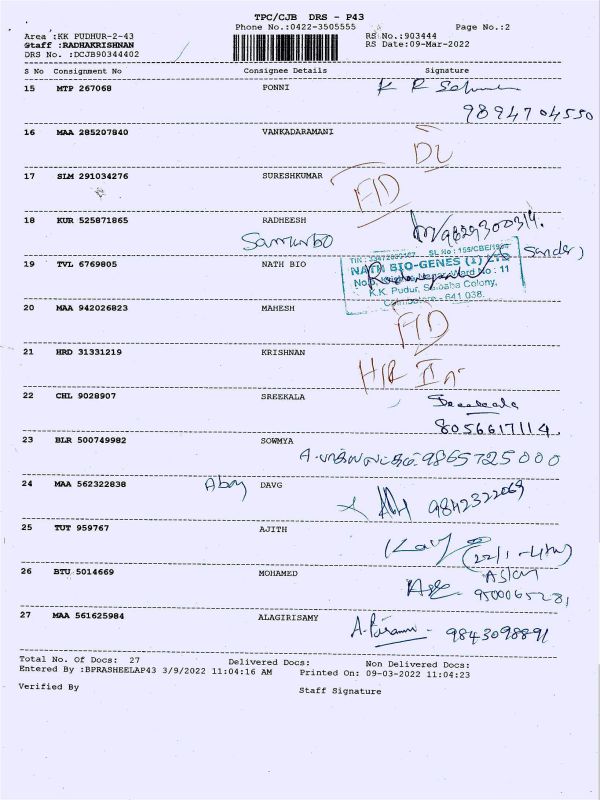 TPC/CJB DRS - P43
Phone No.:0422-3505555 Page No.:2
Area :KK PUDHUR-2-43 RS No.:903444
Staff :RADHAKRISHNAN RS Date:09-Mar-2022
DRS No. :DCJB90344402
S No Consignment No Consignee Details Signature
15 MTP 267068 PONNI K R
9894704550
16 MAA 285207840 VANKADARAMANI
DL
17 SLM 291034276 SURESHKUMAR
18 KUR 525871865 RADHEESH
19 TVL 6769805 NATH BIO
SL No : 155/CBE/1994
NATH BIO-GENES (I) LTD
Ward No : 11
K.K. Pudur, Saibaba Colony,
Coimbatore - 641 038.
20 MAA 942026823 MAHESH
21 HRD 31331219 KRISHNAN
22 CHL 9028907 SREEKALA Sreekala
8056617114
23 BLR 500749982 SOWMYA
9865725000
24 MAA 562322838 DAVG 9842322069
25 TUT 959767 AJITH
26 BTU 5014669 MOHAMED
27 MAA 561625984 ALAGIRISAMY
9843098891
Total No. Of Docs: 27 Delivered Docs: Non Delivered Docs:
Entered By :BPRASHEELAP43 3/9/2022 11:04:16 AM Printed On: 09-03-2022 11:04:23
Verified By Staff Signature